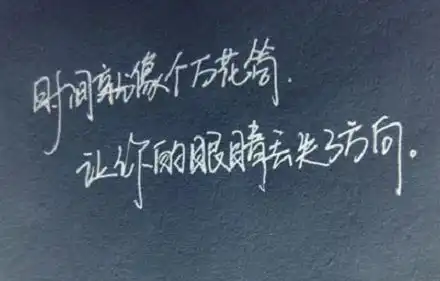 时间就像个万花筒.
让你的眼睛丢失了方向。